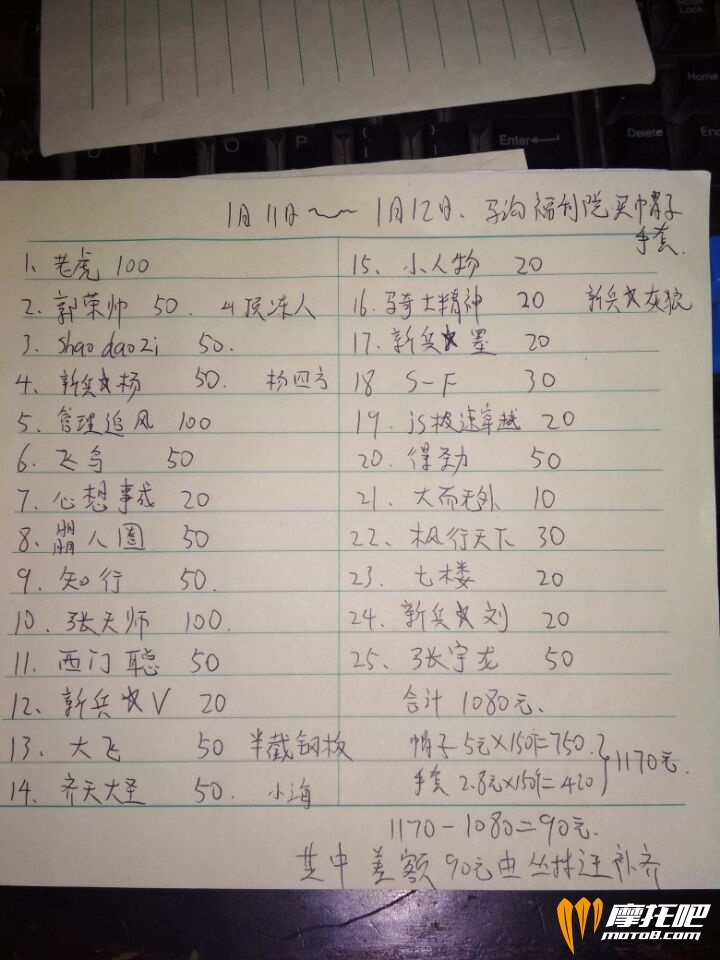 1月11日~~1月12日、马沟福利院买帽子
手套.
1、老虎 100
2、郭荣帅 50. 4顶冻人
3、Shao dao zi 50.
4、新兵☆杨 50. 杨四方
5、管理追风 100
6、飞鸟 50
7、心想事成 20
8、朤人圈 50
9、知行 50.
10、张天师 100.
11、西门聪 50
12、新兵☆V 20
13、大飞 50 半截钢板
14、齐天大圣 50. 小海
15、小人物 20
16、骑士精神 20 新兵☆灰狼
17、新兵☆墨 20
18 S-F 30
19、js极速穿越 20
20、得劲 50
21、大而无外 10
22、枫行天下 30
23、七楼 20
24、新兵☆刘 20
25、张宇龙 50
合计 1080元.
帽子5元×150个=750.
手套 2.8元×150个=420
1170元.
1170-1080=90元.
其中差额90元由丛林过补齐
Scroll Lock
Home
O P { [ } ]
Enter
Delete
End
摩托吧
moto8.com